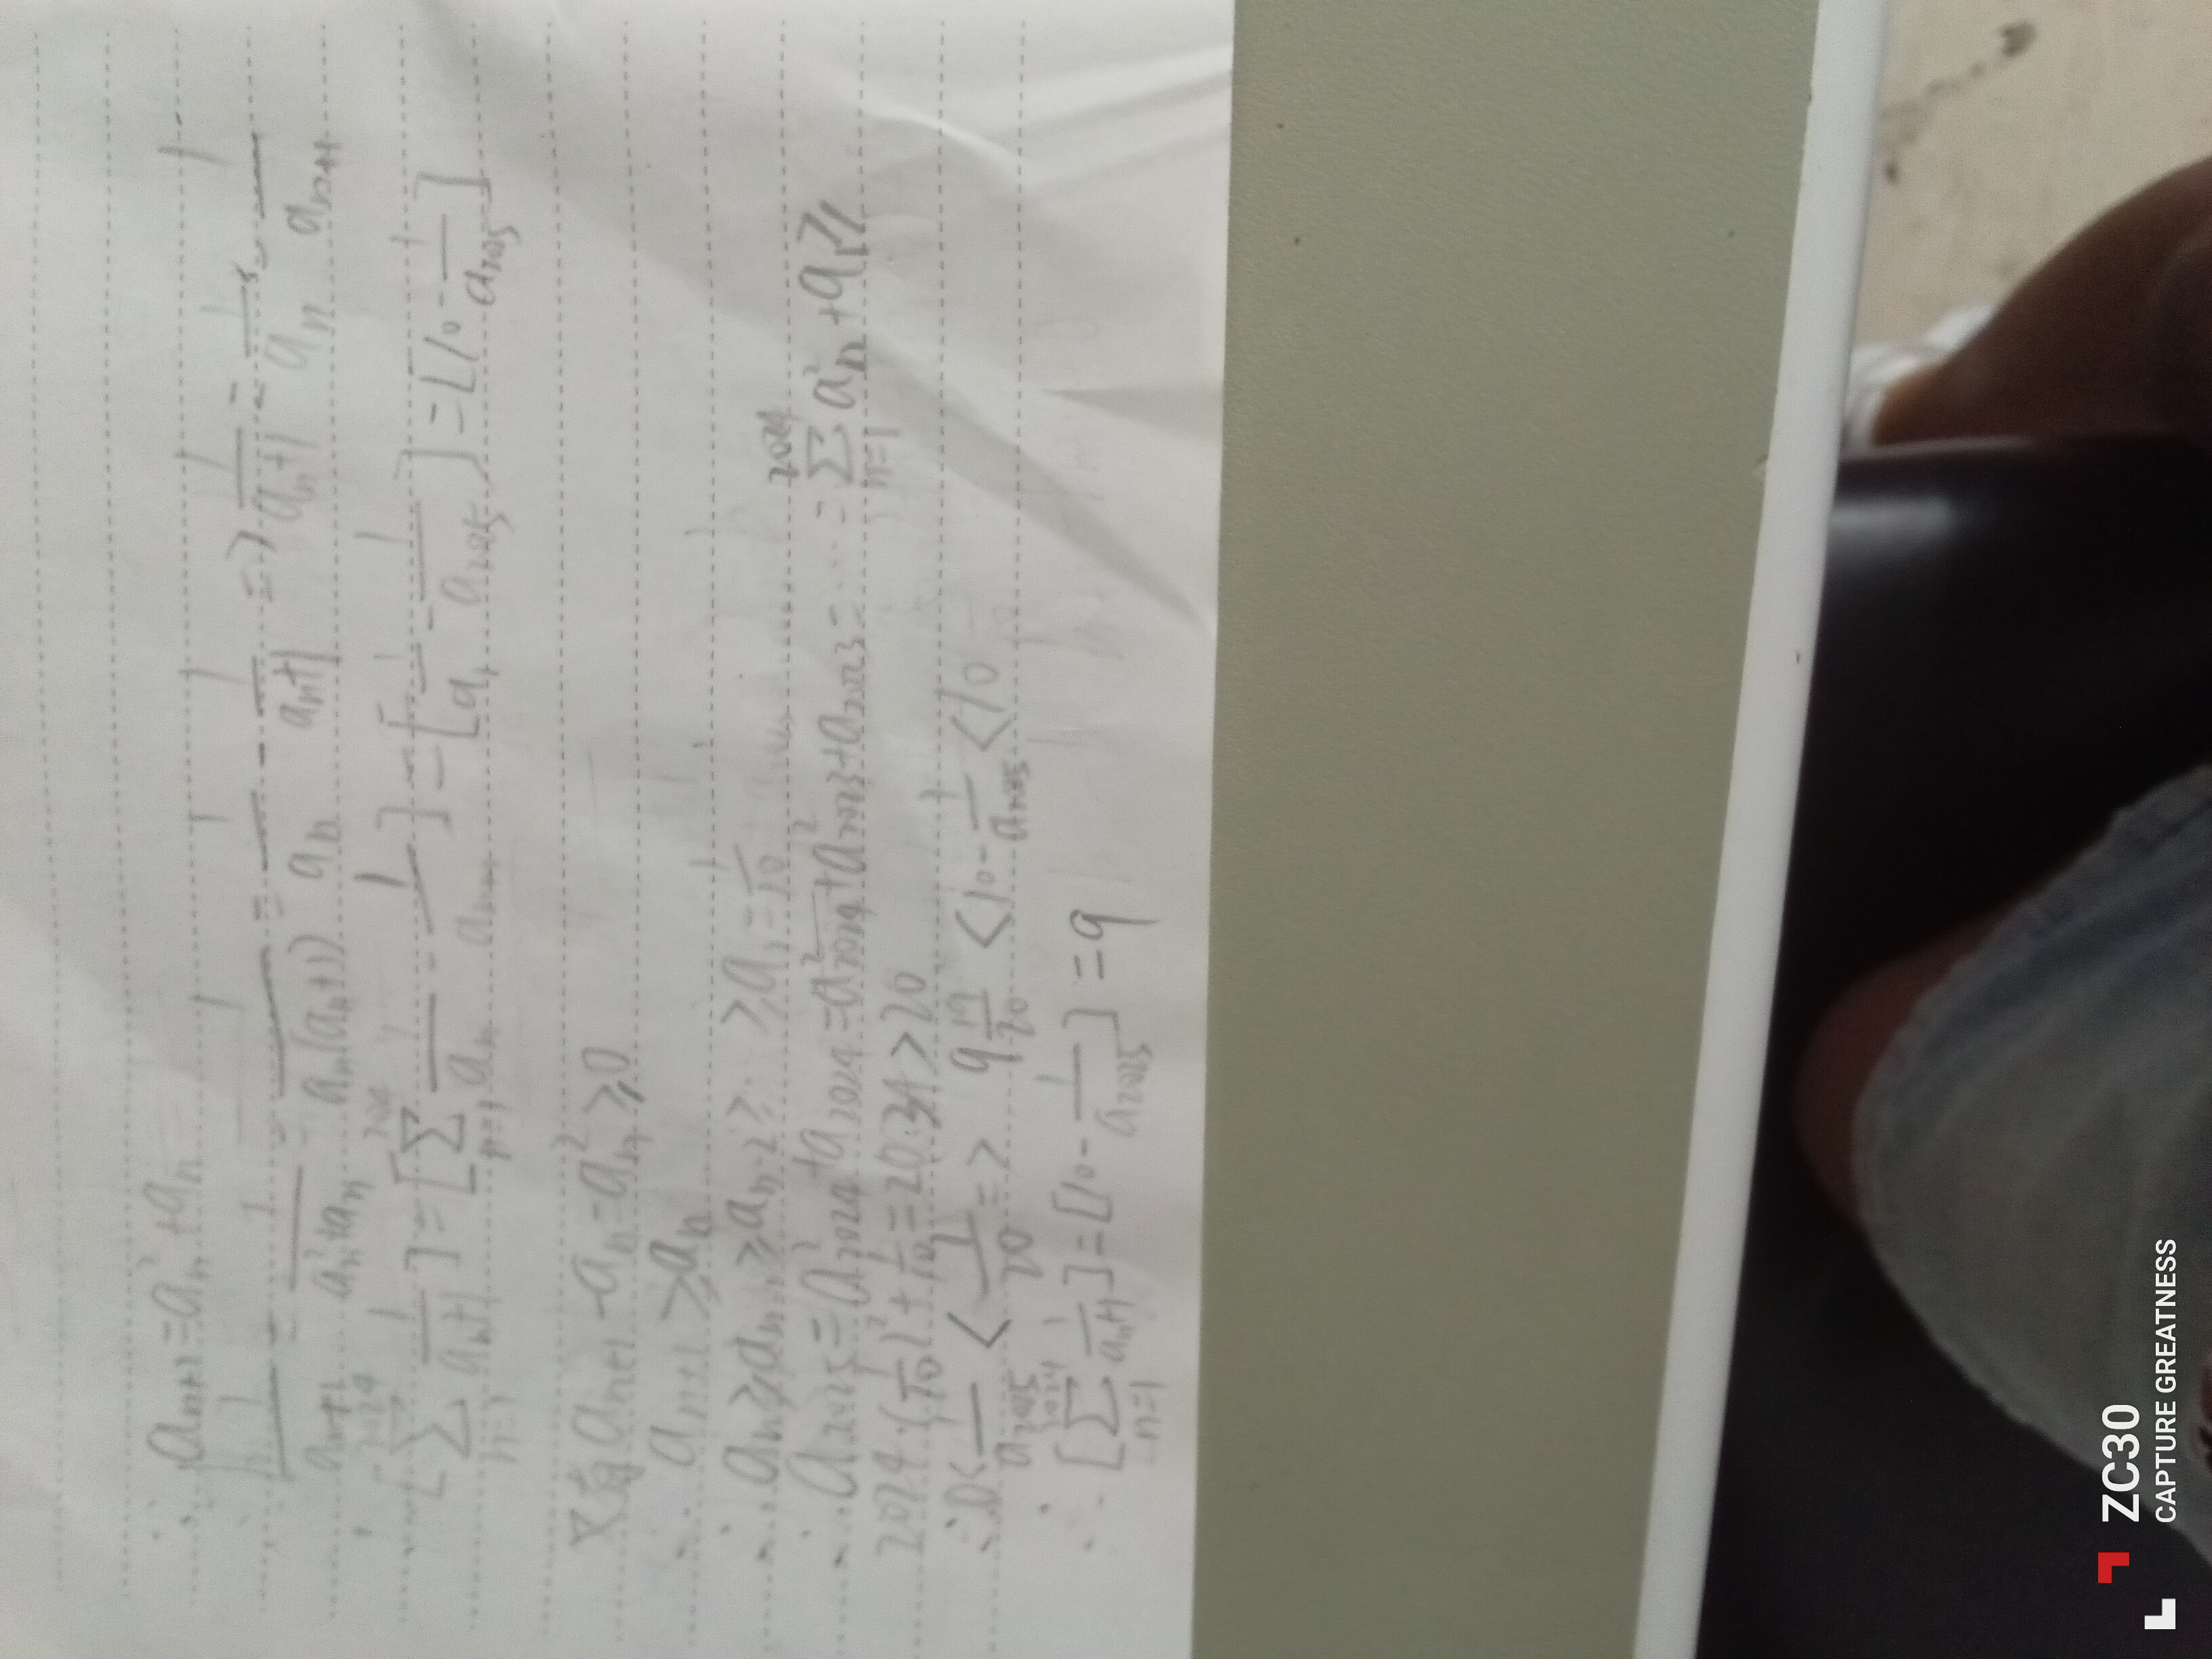 ∵ aₙ₊₁ = aₙ² + aₙ
∴ 1/aₙ₊₁ = 1/(aₙ²+aₙ) = 1/(aₙ(aₙ+1)) = 1/aₙ - 1/(aₙ+1) => 1/(aₙ+1) = 1/aₙ - 1/aₙ₊₁
∴ [∑ₙ₌₁²⁰²⁴ 1/(aₙ+1)] = [∑ₙ₌₁²⁰²⁴ 1/aₙ - 1/aₙ₊₁] = [1/a₁ - 1/a₂₀₂₅] = [10 - 1/a₂₀₂₅]
又有 aₙ₊₁ - aₙ = aₙ² ≥ 0
∴ aₙ₊₁ ≥ aₙ
∴ aₙ ≥ aₙ₋₁ ≥ aₙ₋₂ ≥ … ≥ a₁ = 1/10
∴ a₂₀₂₅ = a²₂₀₂₄ + a₂₀₂₄ = a²₂₀₂₄ + a²₂₀₂₃ + a₂₀₂₃ = … = ∑ₙ₌₁²⁰²⁴ aₙ² + a₁ ≥
2024·(1/10)² + 1/10 = 20.34 > 20
∴ 0 < 1/a₂₀₂₅ < 1/20 => 9 19/20 < 10 - 1/a₂₀₂₅ < 10
∴ [∑ₙ₌₁²⁰²⁴ 1/(aₙ+1)] = [10 - 1/a₂₀₂₅] = 9
ZC30
CAPTURE GREATNESS